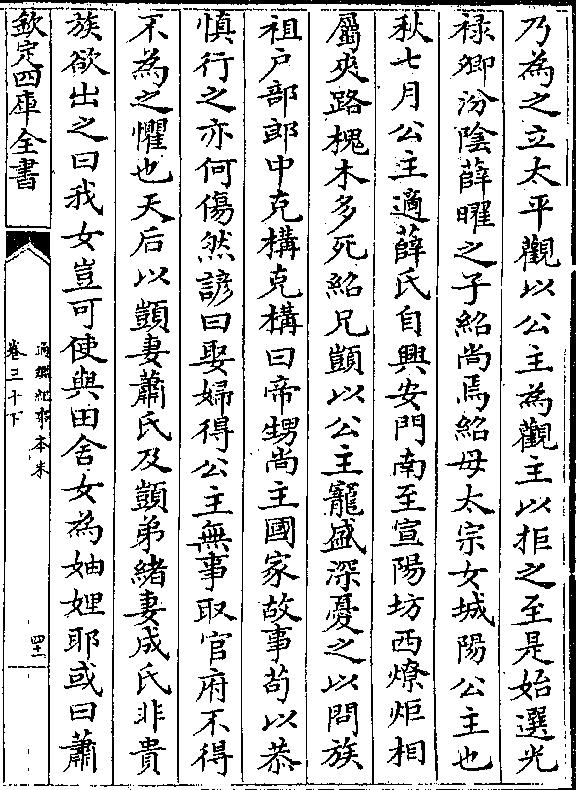 乃為之立太平觀以公主為觀主以拒之至是始選光
禄卿汾陰薛曜之子紹尚焉紹母太宗女城陽公主也
秋七月公主適薛氏自興安門南至宣陽坊西燎炬相
屬夾路槐木多死紹兄顗以公主寵盛深憂之以問族
祖戸部郎中克構克構曰帝甥尚主國家故事苟以恭
慎行之亦何傷然諺曰娶婦得公主無事取官府不得
不為之懼也天后以顗妻蕭氏及顗弟緒妻成氏非貴
族欲出之曰我女豈可使與田舍女為妯娌耶或曰蕭
欽定四庫全書
通鑑紀事本末
卷三十下
四十一